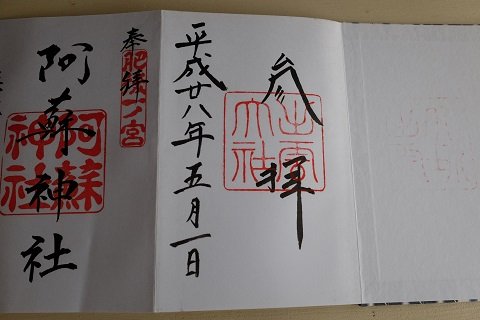 参拝
出雲大社
平成廿八年五月一日
奉拝
肥後一ノ宮
阿蘇神社
阿蘇神社